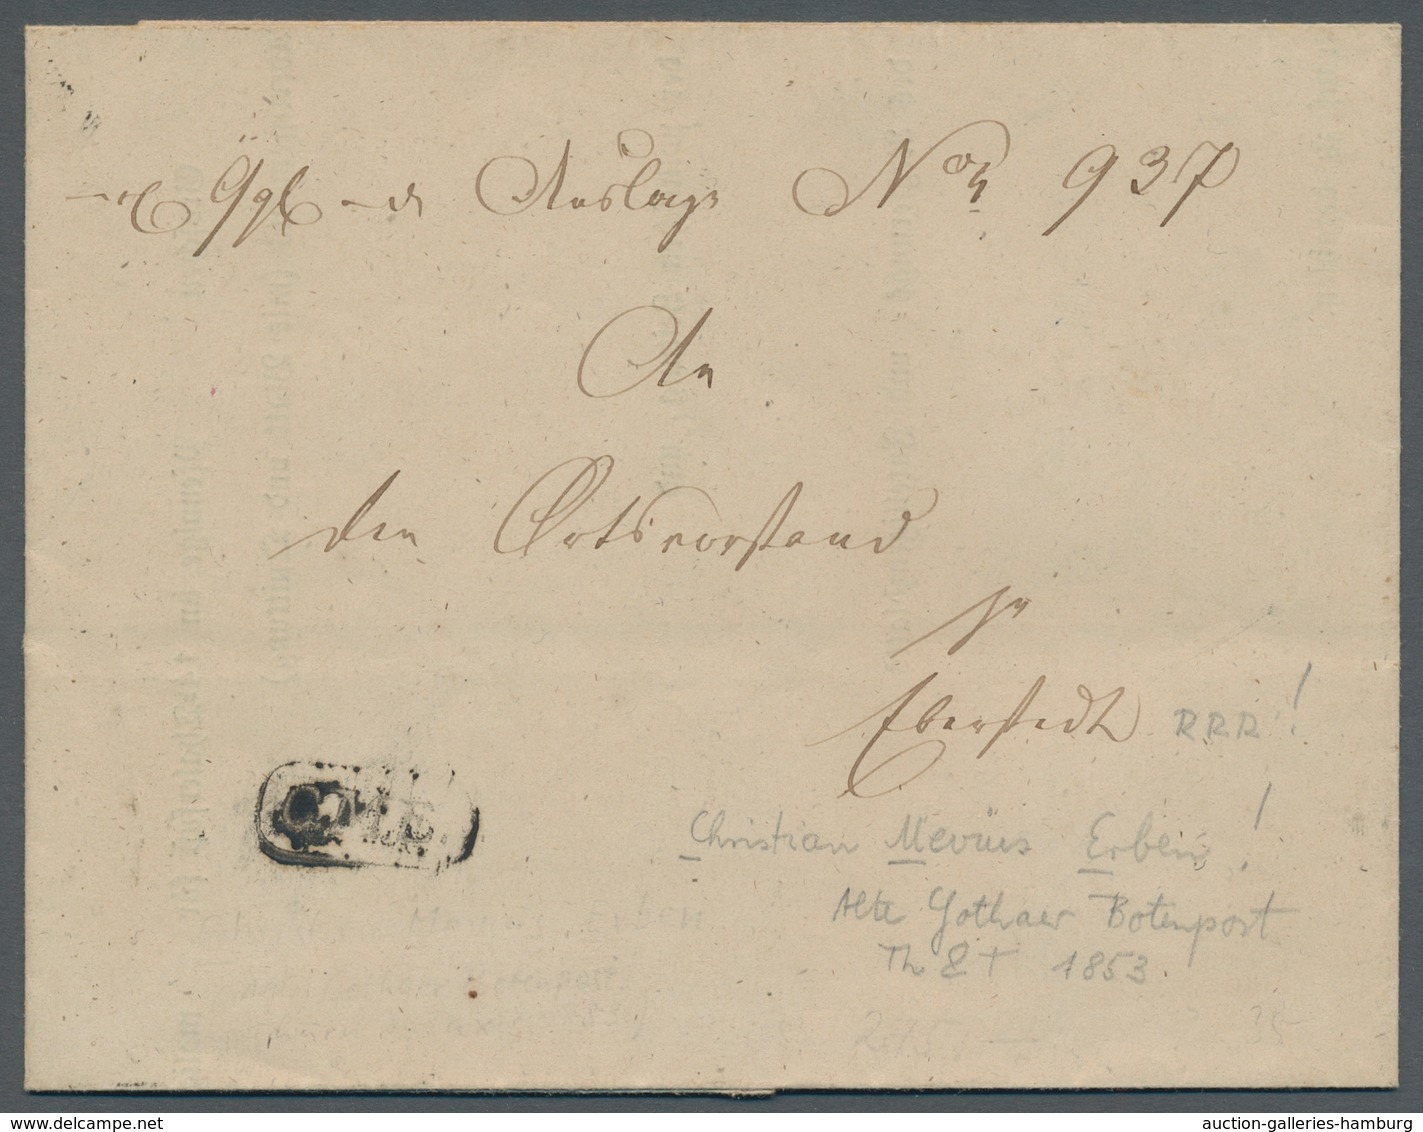 Auslage No 937
An
den Ortsvorstand
zu
Eberstedt RRR!
C.M.E.
Christian Mevius Erben!
Alte Gothaer Botenpost
Th & T 1853
35-
www.delcampe.net
auction-galleries-hamburg